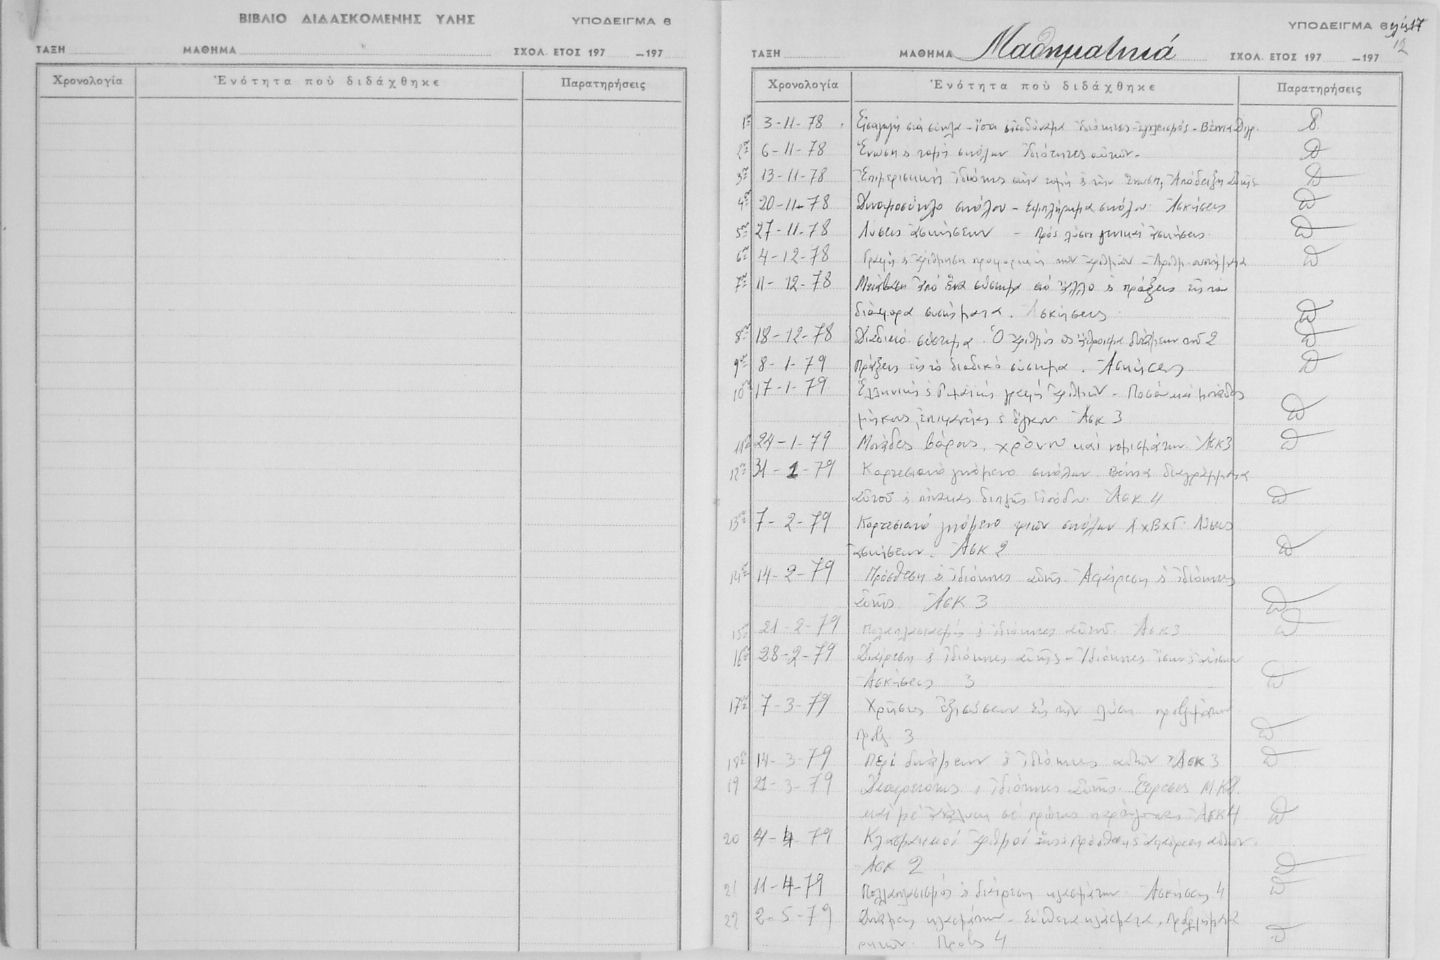 ΒΙΒΛΙΟ ΔΙΔΑΣΚΟΜΕΝΗΣ ΥΛΗΣ
ΥΠΟΔΕΙΓΜΑ 6
ΤΑΞΗ ΜΑΘΗΜΑ ΣΧΟΛ. ΕΤΟΣ 197 –197
Χρονολογία Ἑνότητα ποὺ διδάχθηκε Παρατηρήσεις
ΥΠΟΔΕΙΓΜΑ 6
12
ΤΑΞΗ ΜΑΘΗΜΑ Μαθηματικά ΣΧΟΛ. ΕΤΟΣ 197 –197
Χρονολογία Ἑνότητα ποὺ διδάχθηκε Παρατηρήσεις
1η 3-11-78 Εἰσαγωγή στά σύνολα - Ἴσα ἰσοδύναμα
2α 6-11-78 Ἕνωση & τομή συνόλων ἰδιότητες αὐτῶν.
3η 13-11-78 Ἐπιμεριστική ἰδιότης στήν τομή & τήν ἕνωση, Ἀπόδειξη
4η 20-11-78 Δυναμοσύνολο συνόλου - Συμπλήρωμα συνόλου Ἀσκήσεις
5η 27-11-78 Λύσεις ἀσκήσεων - Πρός λύση γενικαί ἀσκήσεις.
6η 4-12-78 Γραφή & ἀρίθμηση προφορική τῶν ἀριθμῶν -
7η 11-12-78 Μετάβαση ἀπό ἕνα σύστημα στό ἄλλο & πράξεις εἰς τα
διάφορα συστήματα. Ἀσκήσεις
8η 18-12-78 Δυαδικό σύστημα. Ὁ ἀριθμός ὡς ἄθροισμα δυνάμεων τοῦ 2
9η 8-1-79 Πράξεις εἰς τό δυαδικό σύστημα. Ἀσκήσεις
10η 17-1-79 Ἑλληνική & ρωμαϊκή γραφή ἀριθμῶν - Ποσά καί μονάδες
μήκους, ἐπιφανείας & ὄγκου Ἀσκ 3
11η 24-1-79 Μονάδες βάρους, χρόνου καί νομισμάτων Ἀσκ 3
12η 31-1-79 Καρτεσιανό γινόμενο συνόλων Βέννια διαγράμματα
αὐτοῦ & πίνακας διπλῆς εἰσόδου. Ἀσκ 4
13η 7-2-79 Καρτεσιανό γινόμενο τριῶν συνόλων ΑxΒxΓ. Λύσεις
ἀσκήσεων. Ἀσκ 2
14η 14-2-79 Πρόσθεση & ἰδιότητες αὐτῆς. Ἀφαίρεση & ἰδιότητες
αὐτῆς Ἀσκ 3
15η 21-2-79 Πολλαπλασιασμός & ἰδιότητες αὐτοῦ Ἀσκ 3
16η 28-2-79 Διαίρεση & ἰδιότητες αὐτῆς - Ἰδιότητες
Ἀσκήσεις 3
17η 7-3-79 Χρῆσις ἐξισώσεων εἰς τήν λύση προβλημάτων
Προβ. 3
18η 14-3-79 Περί δυνάμεων & ἰδιότητες αὐτῶν Ἀσκ 3
19 21-3-79 Διαιρετότης & ἰδιότητες αὐτῆς. Εὕρεσις Μ.Κ.Δ.
καί με ἀνάλυση σέ πρώτους παράγοντες Ἀσκ 4
20 4-4-79 Κλασματικοί ἀριθμοί πρόσθεση & ἀφαίρεση αὐτῶν.
Ἀσκ 2
21 11-4-79 Πολλαπλασισμός & διαίρεση κλασμάτων. Ἀσκήσεις 4
22 2-5-79 Δυνάμεις κλασμάτων - Σύνθετα κλάσματα, Προβλήματα
Προβ 4